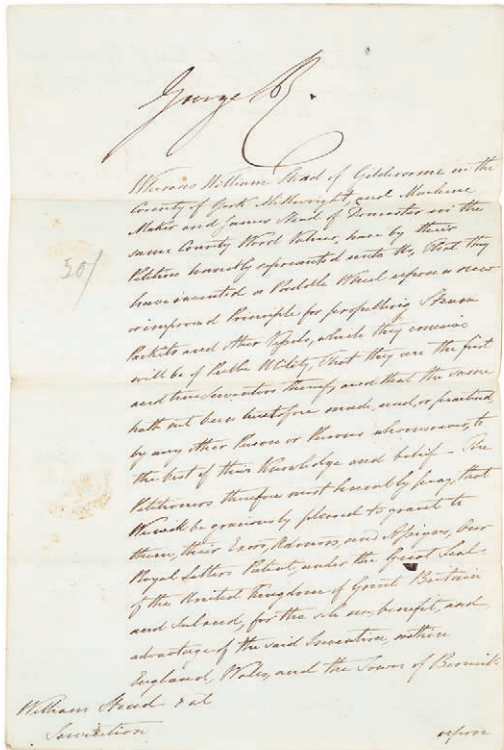 George R.
50/
Whereas William Stead of Gildersome in the
County of York Millwright and Machine
Maker and James Stead of Doncaster in the
same County Wood Valuer, have by their
Petition humbly represented unto Us, That they
have invented a Paddle Wheel upon a new
or improved Principle for propelling Steam
Packets and other Vessels, which they conceive
will be of Public Utility, That they are the first
and true Inventors thereof, and that the same
hath not been heretofore made, used, or practised,
by any other Person or Persons whomsoever, to
the best of their Knowledge and belief – The
Petitioners therefore most humbly pray, that
We will be graciously pleased to grant to
them, their Exors, Admors, and Assigns, Our
Royal Letters Patent, under the Great Seal
of the United Kingdom of Great Britain
and Ireland, for the sole use, benefit, and
advantage of the said Invention, within
England, Wales, and the Town of Berwick
William Stead & al
Invention
upon